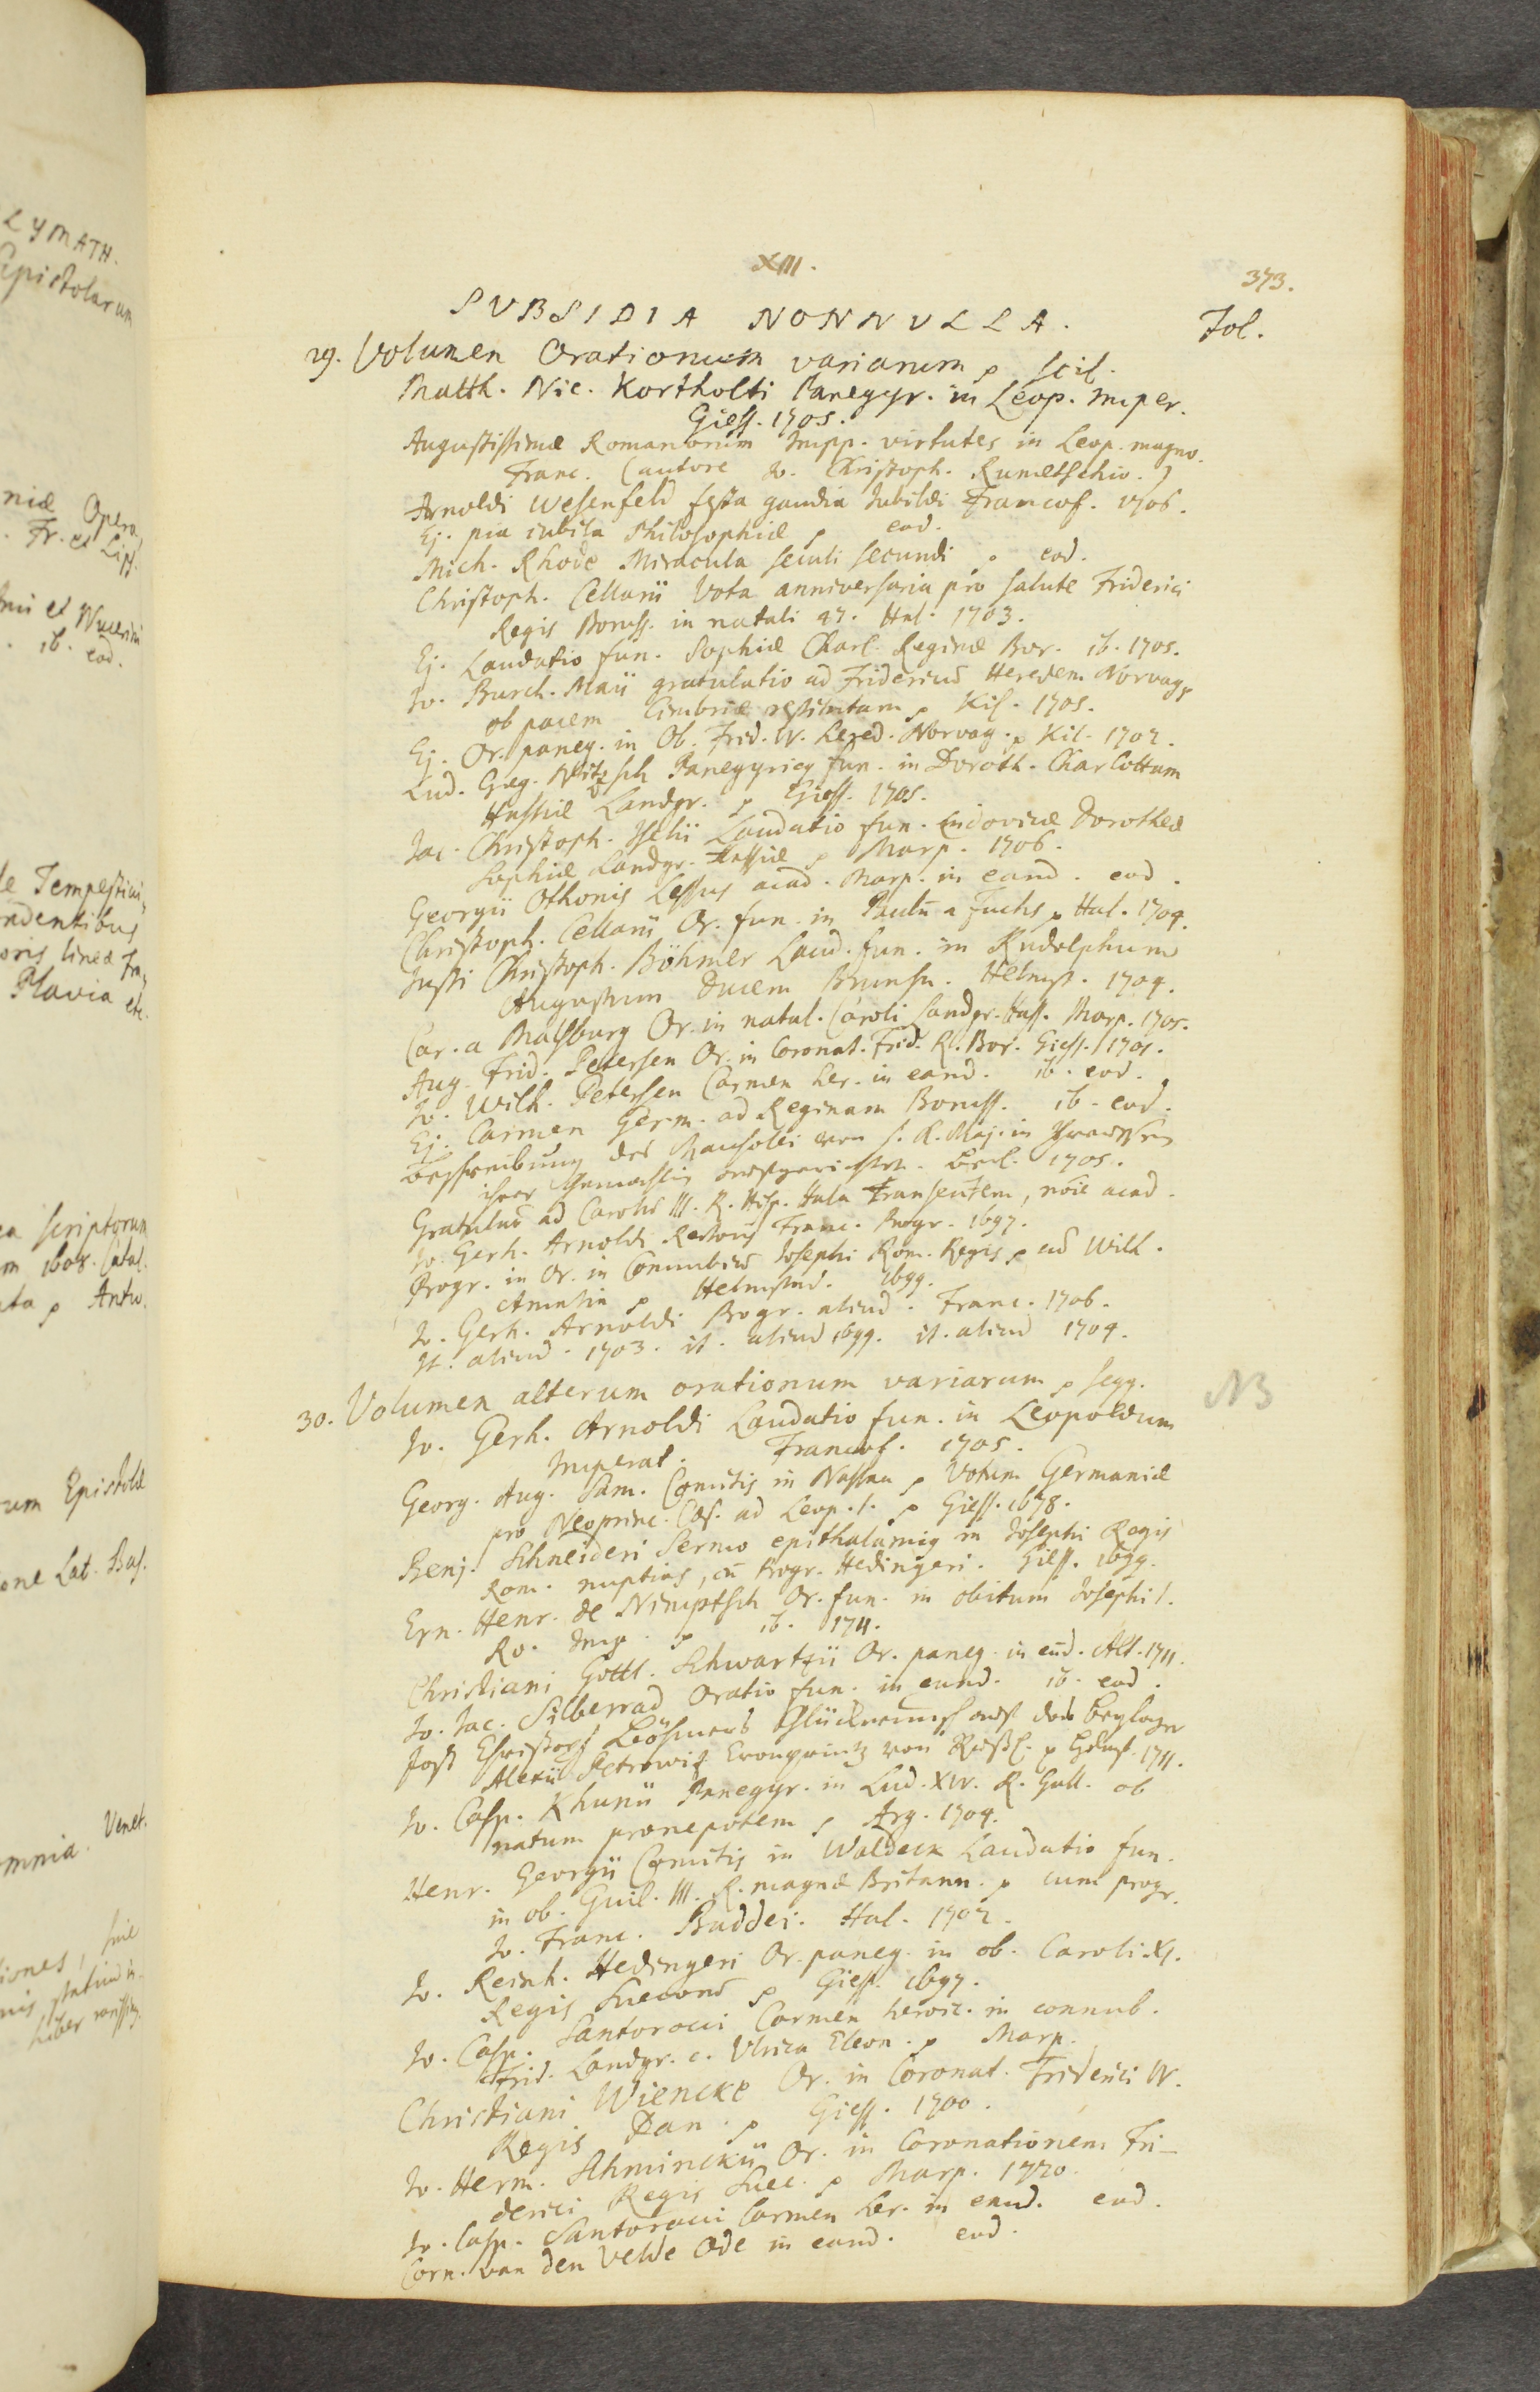 LYMATH.
Epistolarum
niæ Opera
Fr. et Lips.
ib. eod.
de Tempestivi,
ndentibus
oris lineæ
Plavia etc.
ea scriptorum
m 1608. Catal.
ata p Antw.
rum Epistolæ
one Lat. Bas.
omnia. Venet.
tiones, sive
liber rariss.
XIII.
373.
SVBSIDIA NONNVLLA.
Fol.
29. Volumen Orationum variarum p scil.
Matth. Nic. Kortholti Panegyr. in Leop. Imper.
Giess. 1705.
Augustissimæ Romanorum Impp. virtutes in Leop. magno.
Franc. (autore Jo. Christoph. Rumetschio.)
Arnoldi Wesenfeld festa gaudia Jubilæi Francof. 1706.
Ej. pia iubila Philosophiæ p eod.
Mich. Rhode Miracula seculi secundi p eod.
Christoph. Cellarii Vota anniversaria pro salute Friderici
Regis Boruss. in natali 47. Hal. 1703.
Ej. Laudatio fun. Sophiæ Charl. Reginæ Bor. ib. 1705.
Jo. Burch. Maii gratulatio ad Fridericum Heredem Norvag.
ob pacem Cimbriæ restitutam p Kil. 1705.
Ej. Or. paneg. in Ob. Frid. IV. Hered. Norvag. p Kil. 1702.
Lud. Greg. Nitzsch Panegyricus fun. in Doroth. Charlottam
Hassiæ Landgr. p Giess. 1705.
Jac. Christoph. Iselii Laudatio fun. Ludovicæ Dorotheæ
Sophiæ Landgr. Hassiæ p Marp. 1706.
Georgii Othonis Lessus acad. Marp. in eand. eod.
Christoph. Cellarii Or. fun. in Paulū a Fuchs p Hal. 1704.
Justi Christoph. Böhmer Laud. fun. in Rudolphum
Augustum Ducem Brunsu. Helmst. 1704.
Car. a Malsburg Or. in natal. Caroli Landgr. Hass. Marp. 1705.
Aug. Frid. Petersen Or. in Coronat. Frid. R. Bor. Giess. 1701.
Jo. Wilh. Petersen Carmen her. in eand. ib. eod.
Ej. Carmen Germ. ad Reginam Boruss. ib. eod.
Beschreibung des Mausolei von S. K. Maj. in Preussen
ihrer Gemahlin aufgerichtet. Berl. 1705.
Gratulat. ad Carolū III. R. Hisp. Hala transeūtem, nōie acad.
Jo. Gerh. Arnoldi Rectoris Franc. Progr. 1697.
Progr. in Or. in Connubiū Josephi Rom. Regis p ad Wilh.
Amalia p Helmstad. 1699.
Jo. Gerh. Arnoldi Progr. aliud. Franc. 1706.
It. aliud. 1703. it. aliud 1699. it. aliud 1704.
30. Volumen alterum orationum variarum p seqq.
NB
Jo. Gerh. Arnoldi Laudatio fun. in Leopoldum
Imperat. Francof. 1705.
Georg. Aug. Sam. Comitis in Nassau p Votum Germaniæ
pro Neoprinc. Cæs. ad Leop. I. p Giess. 1678.
Benj. Schneideri Sermo epithalamig in Josephi Regis
Rom. nuptias, cū Progr. Hedingeri. Giess. 1699.
Ern. Henr. de Nimptsch Or. fun. in obitum Josephi I.
Ro. Imp. p ib. 1711.
Christiani Gottl. Schwartzii Or. paneg. in eūd. Alt. 1711.
Jo. Jac. Silberrad Oratio fun. in eund. ib. eod.
Just Christoph Böhmers Glückwunsch auf das Beylager
Alexii Petrowiz Cronprintz von Rußl. p Helmst. 1711.
Jo. Casp. Khunii Panegyr. in Lud. XIV. R. Gall. ob
natum pronepotem p Arg. 1704.
Henr. Georgii Comitis in Waldeck Laudatio fun.
in ob. Guil. III. R. magnæ Britann. p cum progr.
Jo. Franc. Buddei. Hal. 1702.
Jo. Reinh. Hedingeri Or. paneg. in ob. Caroli XI.
Regis Suecorū p Giess. 1697.
Jo. Casp. Santorocci Carmen heroic. in connub.
Frid. Landgr. c. Ulrica Eleon. p Marp.
Christiani Wiencke Or. in Coronat. Friderici IV.
Regis Dan. p Giess. 1700.
Jo. Herm. Schminckii Or. in Coronationem Fri-
derici Regis Suec. p Marp. 1720.
Jo. Casp. Santorocci Carmen her. in eand. eod.
Corn. van den Velde Ode in eand. eod.